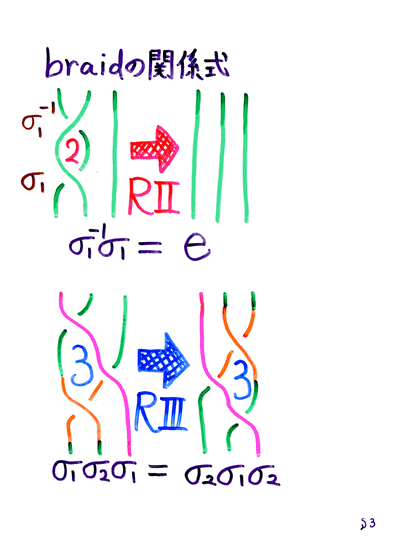 braidの関係式
σ₁⁻¹
2
σ₁
RⅡ
σ₁⁻¹σ₁ = e
3
3
RⅢ
σ₁σ₂σ₁ = σ₂σ₁σ₂
S3